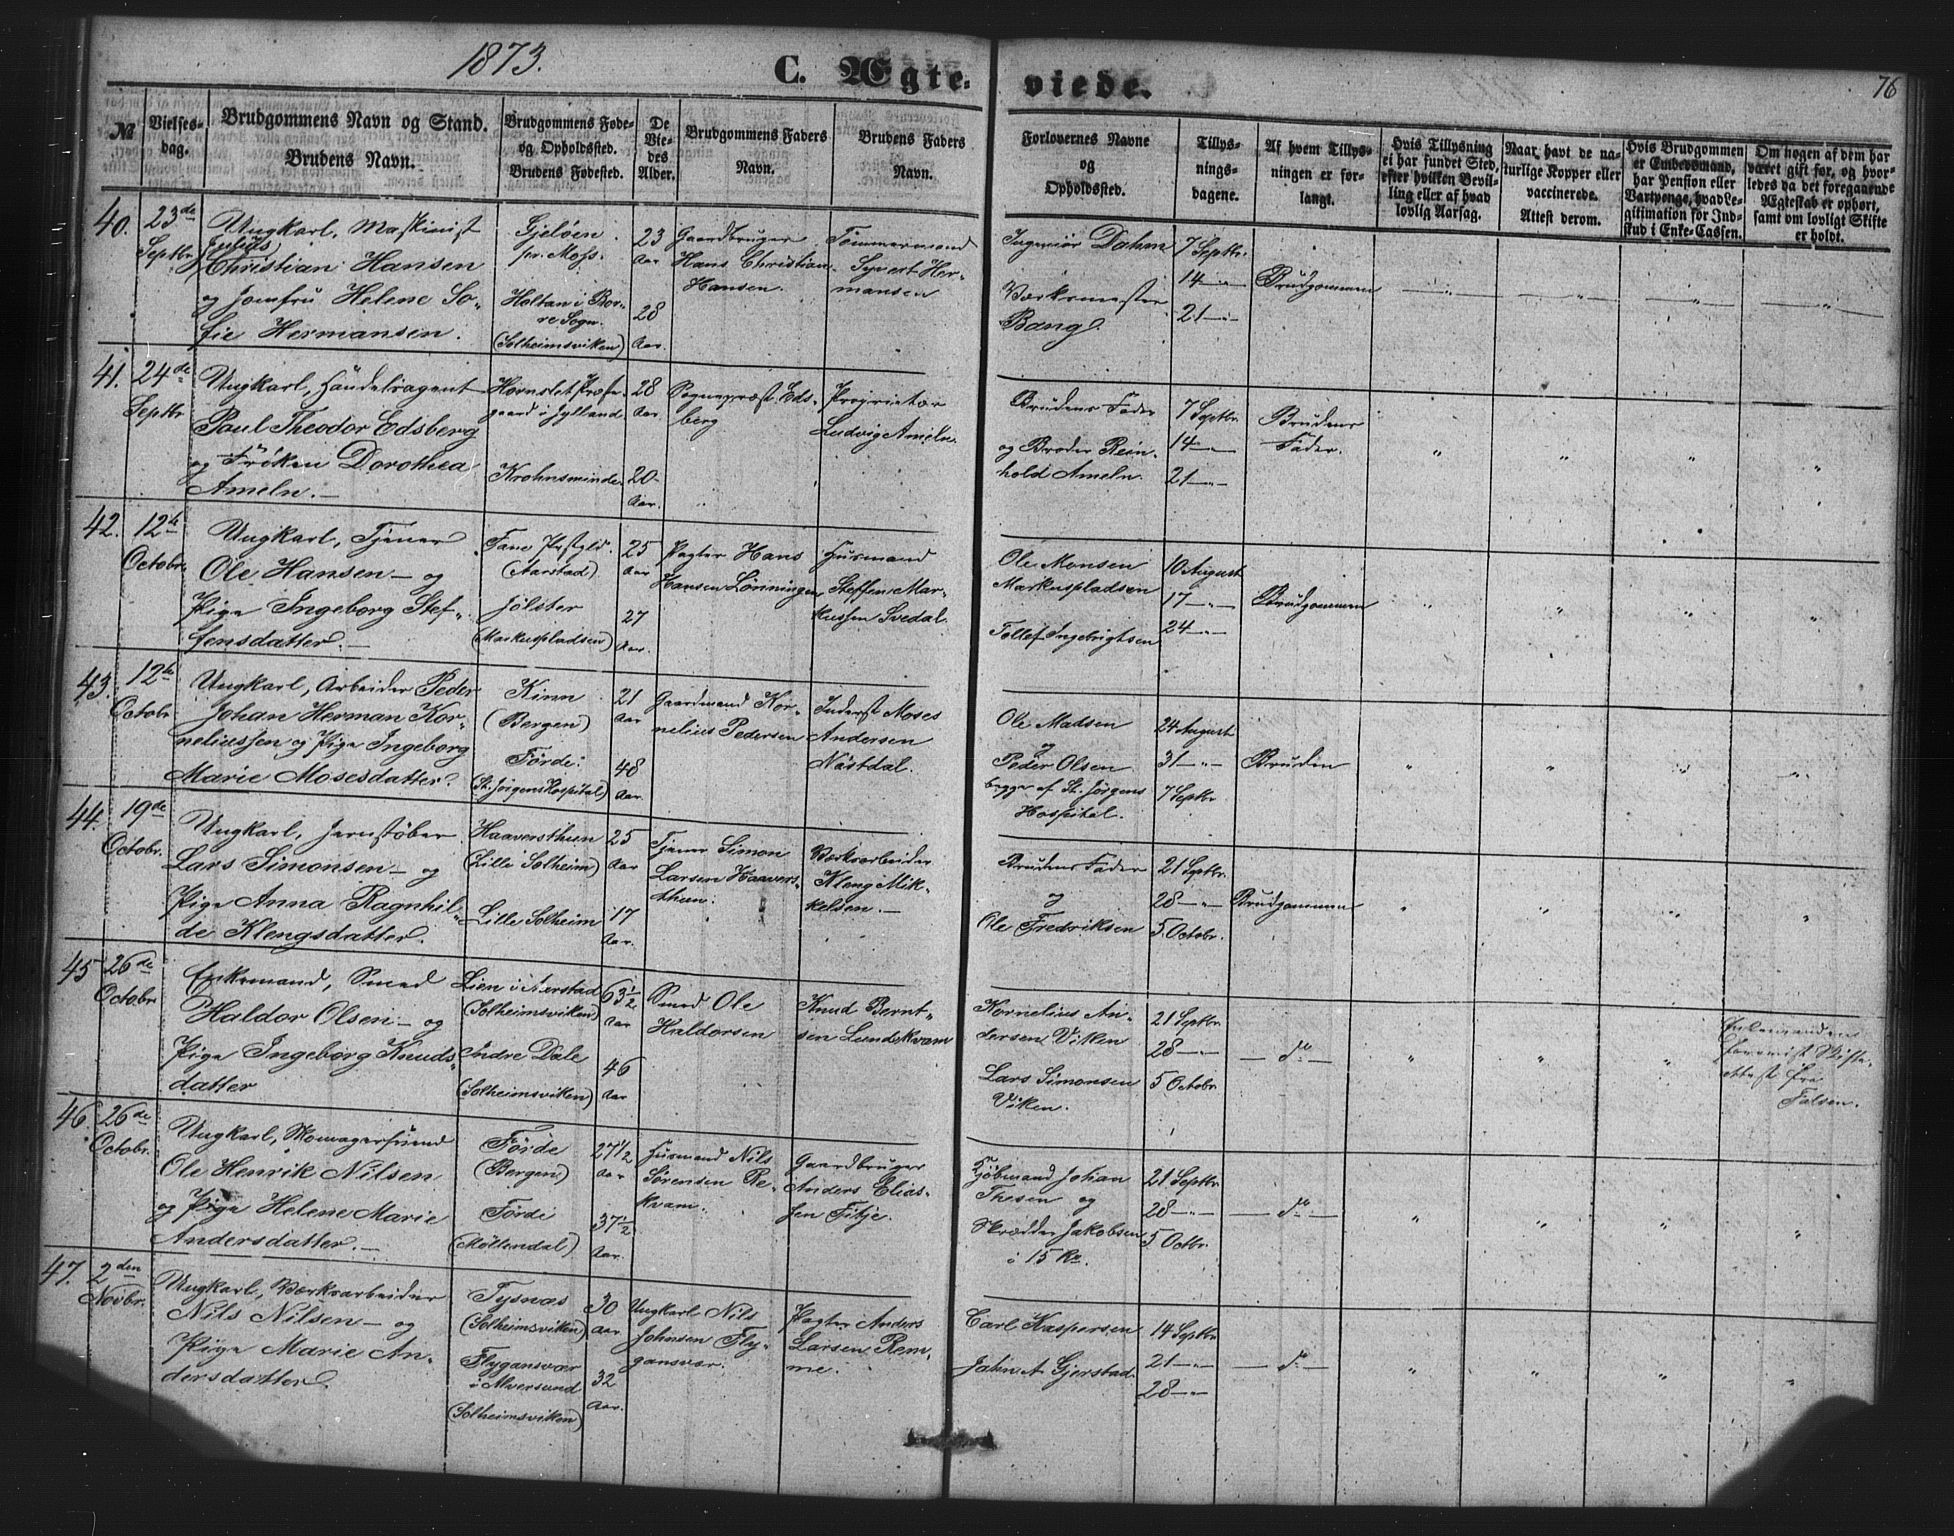 1873.
C. Ægte-
viede.
76
№
Vielses-
dag.
Brudgommens Navn og Stand.
Brudens Navn.
Brudgommens Føde-
og Opholdssted.
Brudens Fødested.
De
Vie-
des
Alder.
Brudgommens Faders
Navn.
Brudens Faders
Navn.
Forlovernes Navne
og
Opholdssted.
Tillys-
nings-
dagene.
Af hvem Tillys-
ningen er for-
langt.
Hvis Tillysning
ei har fundet Sted,
efter hvilken Bevil-
ling eller af hvad
lovlig Aarsag.
Naar havt de na-
turlige Kopper eller
vaccinerede.
Attest derom.
Hvis Brudgommen
er Embedsmand,
har Pension eller
Vartpenge, hvad Le-
gitimation for Ind-
skud i Enke-Cassen.
Om nogen af dem har
været gift før, og hvor-
ledes da det foregaaende
Ægteskab er ophørt,
samt om lovligt Skifte
er holdt.
40.
23de
Septbr.
Ungkarl, Maskinist
Julius
Christian Hansen
og Jomfru Helene So-
fie Hermansen.
Gjeløen
pr. Moss.
Holtan i Bor-
re Sogn.
(Solheimsviken)
23
Aar
28
Aar.
Gaardbruger
Hans Christian
Hansen.
Tømmermand
Syvert Her-
mansen
Ingeniør Dahm
Værksmester
Bang.
7 Septbr.
14 -"-
21 -"-
Brudgommen
41.
24de
Septbr
Ungkarl, Handelsagent
Paul Theodor Edsberg
og Frøken Dorothea
Ameln.-
Hornslet Præste-
gaard i Jylland
Krohnsminde.
28
Aar.
20
Aar.
Sognepræst Eds-
berg
Proprietær
Ludvig Ameln.
Brudens Fader
og Broder Rein-
hold Ameln.
7 Septbr.
14 -"-
21 -"-
Brudens
Fader.
42.
12te
Octobr.
Ungkarl, Tjener
Ole Hansen - og
Pige Ingeborg Stef-
fensdatter.-
Fane Prstgld.
(Aarstad)
Jølster
(Markuspladsen)
25
Aar
27
Aar.
Pagter Hans
Hansen Lønningen
Husmand
Steffen Mar-
kussen Svedal.
Ole Monsen
Markuspladsen
Tollef Ingebrigtsen
10 August
17 -"-
24 -"-
Brudgommen
43.
12te
Octobr.
Ungkarl, Arbeider Peder
Johan Herman Kor-
neliussen og Pige Ingeborg
Marie Mosesdatter.
Kinn
(Bergen)
Førde.
(St. Jørgens Hospital)
21
Aar
48
Aar.
Gaardmand Kor-
nelius Pedersen
Inderst Moses
Andersen
Nästdal.
Ole Madsen
og
Peder Olsen
begge af St. Jørgens
Hospital.
24 August
31 -"-
7 Septbr.
Bruden
44.
19de
Octobr.
Ungkarl, Jernstøber
Lars Simonsen - og
Pige Anna Ragnhil-
de Klengsdatter.
Haaversthun
(Lille Solheim)
Lille Solheim
25
Aar
17
Aar.
Tjener Simon
Larsen Haavers-
thun.
Værksarbeider
Kleng Mik-
kelsen.-
Brudens Fader
og
Ole Fredriksen
21 Septbr.
28 -"-
5 Octobr.
Brudgommen
45
26de
Octobr
Enkemand, Smed
Haldor Olsen - og
Pige Ingeborg Knuds-
datter
Lien i Aarstad
(Solheimsviken)
Indre Dale
(Solheimsviken)
63½
Aar
46
Aar
Smed Ole
Haldorsen
Knud Bernt-
sen Lundekvam
Kornelius An-
dersen Viken
Lars Simonsen
Viken.
21 Septbr.
28 -"-
5 Octobr.
- do -
Enkemanden
forevist Skifte-
attest fra
Falsen.
46.
26de
Octobr.
Ungkarl,
Ole Henrik Nilsen
og Pige Helene Marie
Andersdatter.-
Førde
(Bergen)
Førde
(Møllendal)
27½
Aar
37½
Aar.
Husmand Nils
Sørensen Be-
kvam.
Gaardbruger
Anders Elias-
sen Fitje.
Kjøbmand Johan
Thesen og
Skrædder Jakobsen
i 15 Ro.
21 Septbr.
28 -"-
5 Octbr.
- do -
47.
2den
Novbr.
Ungkarl, Værksarbeider
Nils Nilsen - og
Pige Marie An-
dersdatter.
Tysnæs
(Solheimsviken)
Flygansvær
i Alversund
(Solheimsviken)
30
Aar
32
Aar.
Ungkarl Nils
Johnsen Fly-
gansvær.
Pagter Anders
Larsen Rem-
me.
Carl Kaspersen
John A Gjerstad.
14 Septbr
21 -"-
28 -"-
- do -